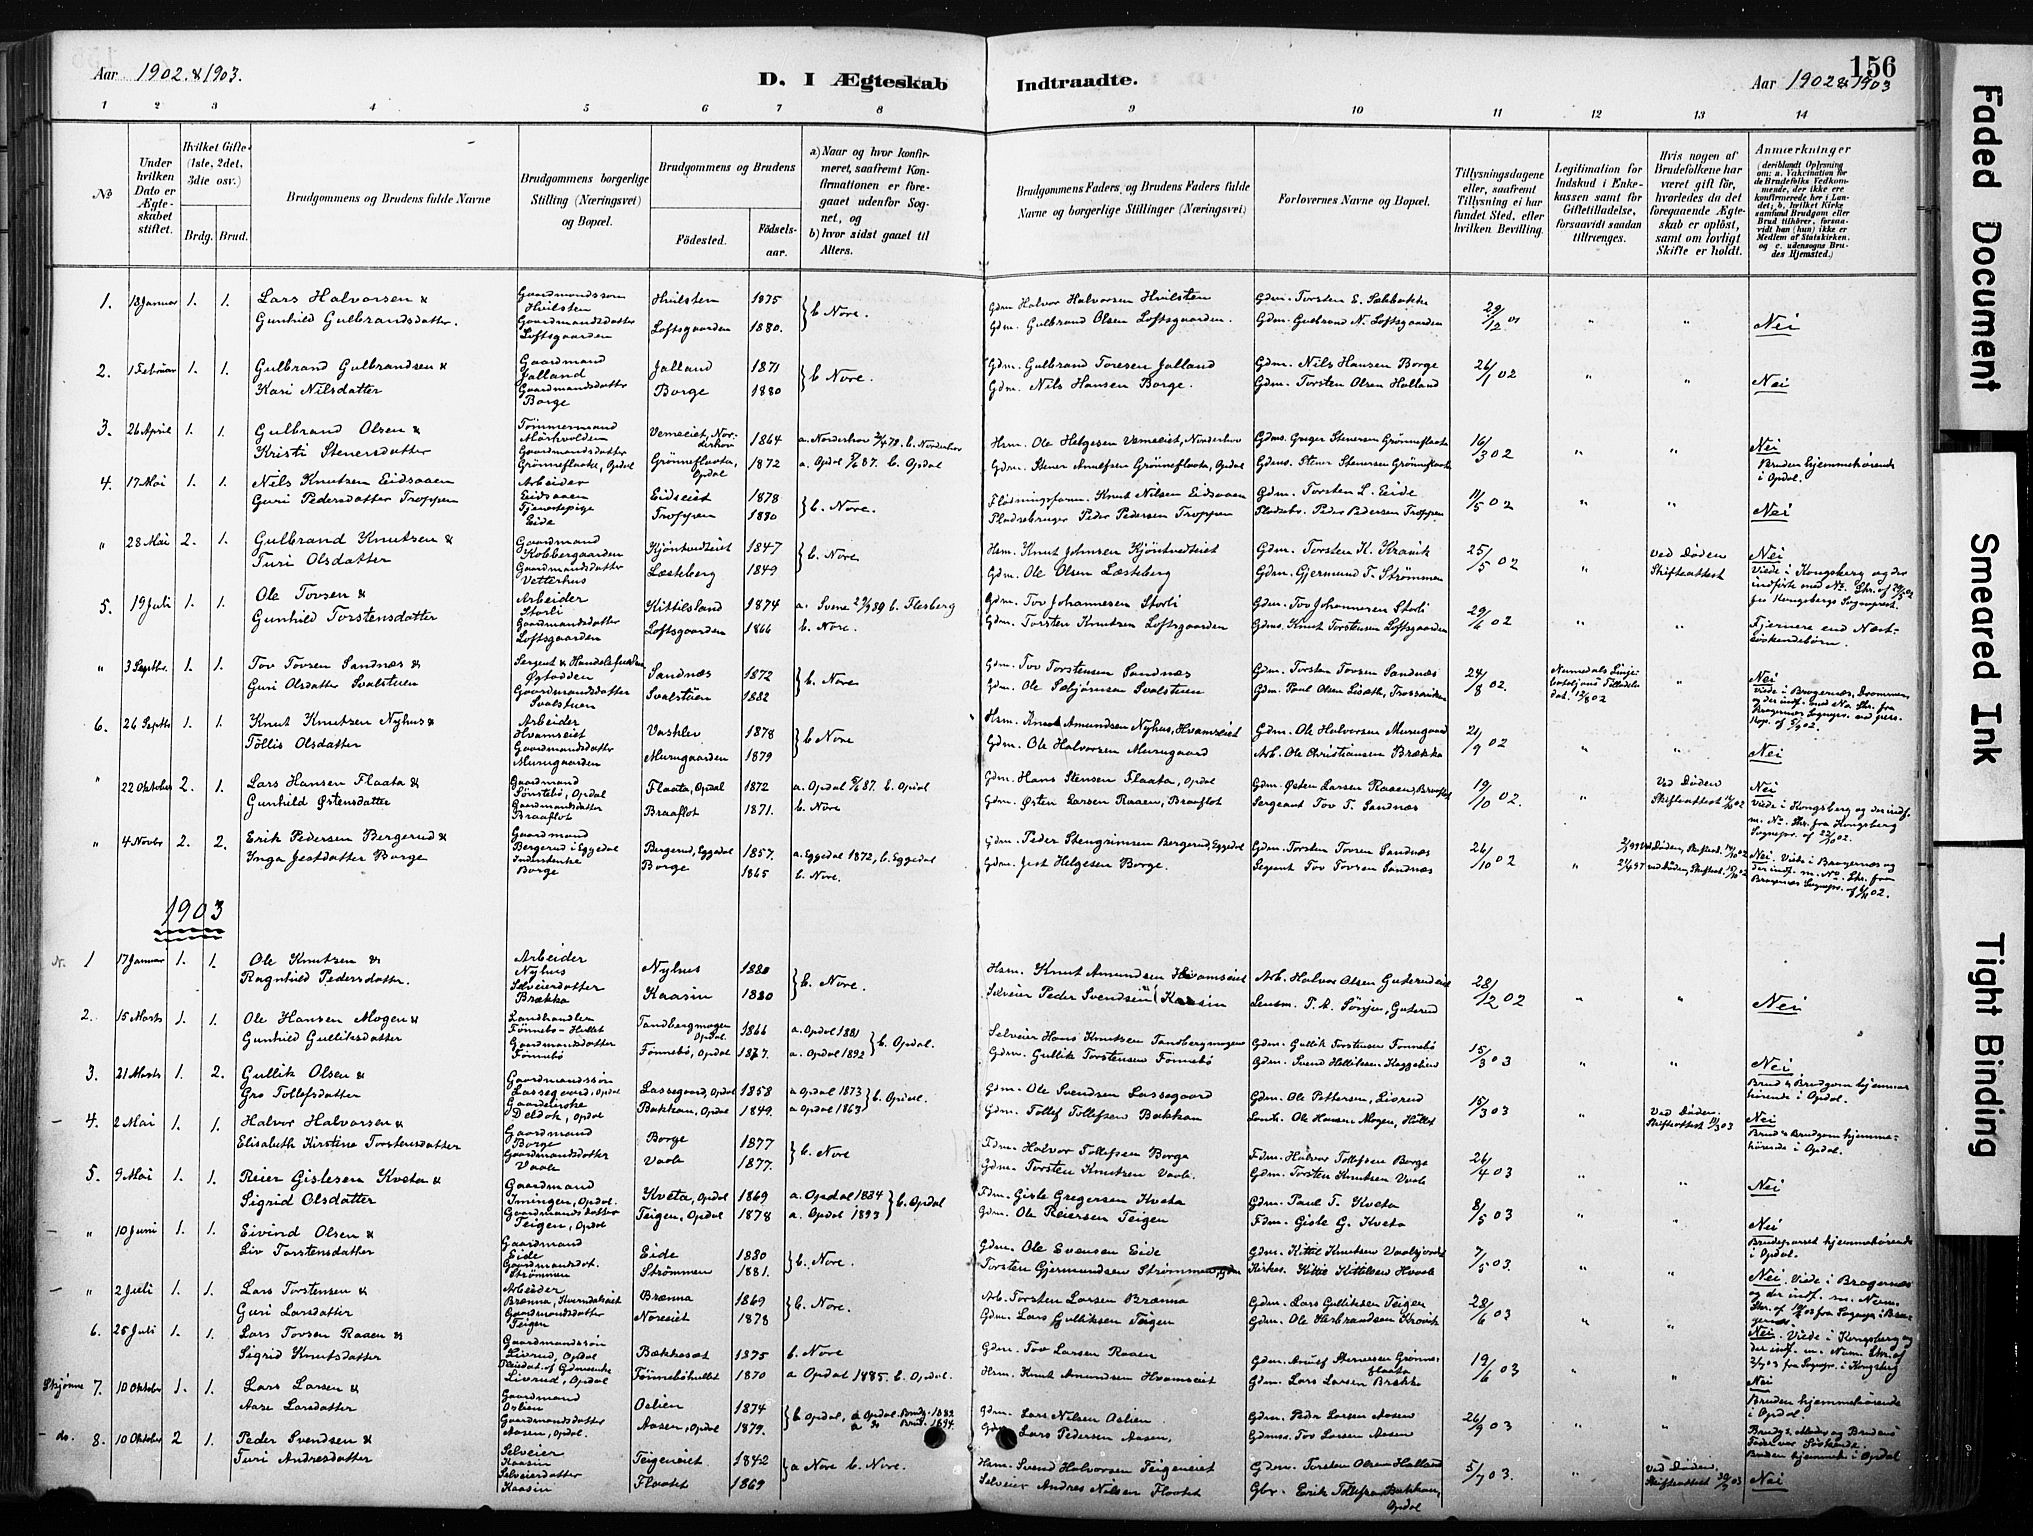 Aar 1902 & 1903.
D. I Ægteskab Indtraadte.
Aar 1902 & 1903
156
1 2 3 4 5 6 7 8 9 10 11 12 13 14
No
Under hvilken Dato er Ægteskabet stiftet.
Hvilket Gifte (1ste, 2det, 3die osv.)
Brdg. Brud.
Brudgommens og Brudens fulde Navne
Brudgommens borgerlige Stilling (Næringsvei) og Bopæl.
Brudgommens og Brudens
Fødested.
Fødselsaar.
a) Naar og hvor konfirmeret, saafremt Konfirmationen er foregaaet udenfor Sognet, og
b) hvor sidst gaaet til Alters.
Brudgommens Faders, og Brudens Faders fulde Navne og borgerlige Stillinger (Næringsvei)
Forlovernes Navne og Bopæl.
Tillysningsdagene eller, saafremt Tillysning ei har fundet Sted, efter hvilken Bevilling.
Legitimation for Indskud i Enkekassen samt for Giftetilladelse, forsaavidt saadan tiltrænges.
Hvis nogen af Brudefolkene har været gift før, hvorledes da det foregaaende Ægteskab er opløst, samt om lovligt Skifte er holdt.
Anmærkninger (deriblandt Oplysning om: a. Vakcination for de Brudefolks Vedkommende, der ikke ere konfirmerede her i Landet; b. hvilket Kirkesamfund Brudgom eller Brud tilhører, forsaavidt han (hun) ikke er Medlem af Statskirken, og c. udensogns Brudes Hjemsted.)
1. 18 Januar 1. 1. Lars Halvorsen & Gaardmandssøn Hvilsten Hvilsten 1875 b Nore. Gdm Halvor Halvorsen Hvilsten Gdm. Torsten E. 29/12 01
Gunhild Gulbrandsdatter. Gaardmandsdatter Loftsgaarden Loftsgaarden 1880. Gdm. Gulbrand Olsen Loftsgaarden. Gdm. Gulbrand N. Loftsgaarden Nei
2. 1 Februar 1. 1. Gulbrand Gulbrandsen & Gaardmand Jalland Jalland 1871 b Nore. Gdm. Gulbrand Toresen Jalland Gdm. Nils Hansen Borge 26/1 02
Kari Nilsdatter Gaardmandsdatter Borge Borge 1880 Gdm. Nils Hansen Borge. Gdm. Torsten Olsen Holland Nei
3. 26 April 1. 1. Gulbrand Olsen & Tømmermand Vemeeiet, Norderhov 1864 a. Norderhov b. Norderhov Hsm. Ole Helgesen Vemeeiet, Norderhov Gdms. Greger Stenersen Grønneflaata 16/3 02 Nei
Kristi Stenersdatter Gaardmandsdatter Grønneflaata, Opdal Grønneflaata, Opdal 1872 a. Opdal 87. b. Opdal Gdm. Stener Grønneflaata, Opdal Gdms. Stener Stenersen Grønneflaata Bruden hjemmehørende i Opdal.
4. 17 Mai 1. 1. Nils Knutsen Eidsaaen Arbeider Eidsaaen Eideeiet 1878 b. Nore. Knut Nilsen Eidsaaen Gdm. Torsten L. Eide 11/5 02
Guri Pedersdatter Troppen Tjenestepige Eide Troppen 1880 Pladsebruger Peder Pedersen Troppen Pladsebr. Peder Pedersen Troppen Nei
" 28 Mai 2. 1. Gulbrand Knutsen & Gaardmand Kobbergaarden Kjøntvedteiet 1847 b. Nore Hsm. Knut Johnsen Kjøntvedteiet Gdm. Torsten K. Kravik 25/5 02 Ved Døden Skifteattest Nei
Turi Olsdatter Gaardmandsdatter Vetterhus Læsteberg 1849 Gdm. Ole Olsen Læsteberg Gdm. Gjermund T. Strømmen Viede i Kongsberg og der indførte med No. Skr. af 28/5 02 fra Kongsbergs Sognepræst.
5. 19 Juli 1. 1. Ole Tovsen & Arbeider Storli Kittilsland 1874 a. Svene 89 b. Flesberg Gdm. Tov Johannesen Storli Gdm. Tov Johannesen Storli 29/6 02
Gunhild Torstensdatter Gaardmandsdatter Loftsgaarden Loftsgaarden 1866 b. Nore. Gdm. Torsten Knutsen Loftsgaarden Gdms. Knut Torstensen Loftsgaarden Fjernere end Næstsøskendebørn.
" 3 Septbr. 1. 1. Tov Tovsen Sandnæs & Sergent & Sandnæs 1872 b. Nore Gdm. Tov Torstensen Sandnæs Gdm. Torsten Tovsen Sandnæs 24/8 02. Numedals Linjebataljons Tilladelse dat. 12/8 02 Nei
Guri Olsdatter Svalstuen Gaardmandsdatter Svalstuen Svalstuen 1882 Gdm. Ole Sæbjørnsen Svalstuen Gdm. Paul Olsen Viede i Bragernæs, Drammen
6. 26 Septbr 1. 1. Knut Knutsen Nyhus & Arbeider Hvamseiet 1878 b Nore Hsm. Knut Amundsen Nyhus, Hvamseiet Gdm. Ole Halvorsen Murugaard 21/9 02
Tøllis Olsdatter Gaardmandsdatter Murugaarden Murugaarden 1879 Gdm. Ole Halvorsen Murugaard Arb. Ole Christiansen Brække Nei
" 22 Oktober 2. 1. Lars Hansen Flaata & Gaardmand Sønstebø, Opdal Flaata, Opdal 1872 a. Opdal 87. b. Opdal Gdm. Hans Stensen Flaata, Opdal Gdm. Østen Larsen Raaen, Braaflot 19/10 02. Ved Døden Skifteattest Nei
Gunhild Østensdatter Gaardmandsdatter Braaflot Braaflot 1871. b. Nore Gdm. Østen Larsen Raaen, Braaflot Sergeant Tov T. Sandnæs Viede i Kongsberg og der indf. m. No. Skr. fra Kongsberg Sognepr. af 22/10 02.
" 4 Novbr 2. 2. Erik Pedersen Bergerud & Gaardmand Bergerud i Eggedal Bergerud, Eggedal 1857. a. Eggedal 1872, b. Eggedal Gdm. Peder Stengrimsen Bergerud, Eggedal Gdm. Torsten Tovsen Sandnæs 26/10 02
Inga Jestdatter Borge Borge Borge 1865 b. Nore. Gdm. Jest Helgesen Borge. Sergeant Tov Tovsen Sandnæs Nei. Viede i Bragernæs og der indf. m. No. Skr. fra Bragernæs Sognepr.
1903
N. 1 17 Januar 1. 1. Ole Knutsen & Arbeider Nyhus Nyhus 1880 b. Nore. Hsm. Knut Amundsen Hvamseiet Arb. Halvor Olsen Guterudeiet 28/12 02
Ragnhild Pedersdatter. Selveierdatter Brække Kaasin 1880 Selveier Peder Svendsen Kaasin Lensm. T. A. Sønju, Guterud Nei
2. 15 Marts 1. 1. Ole Hansen Mogen & Landhandler Fønnebø-Hullet Tandbergmogen Opdal. 1866 a. Opdal 1881 b. Opdal. Selveier Hans Knutsen Tandbergmogen Gdm. Gullik Torstensen Fønnebø 15/3 03
Gunhild Gulliksdatter Gaardmandsdatter Fønnebø Fønnebø, Opdal 1877. a. Opdal 1892 Gdm. Gullik Torstensen Fønnebø Gdm. Svend Helliksen Nei
3. 21 Marts 1. 2. Gullik Olsen & Gaardmandssøn Lassegaard, Opdal Lassegaard, Opdal 1858 a Opdal 1873 b. Opdal. Gdm. Ole Svendsen Lassegaard Gdm. Ole Pettersen, Livrud 15/3 03 Brud & Brudgom hjemmehørende i Opdal.
Gro Tollefsdatter Gaardenke Deldok, Opdal Bakkan, Opdal 1849. a Opdal 1863 Gdm. Tollef Tollefsen Bakkan Landh. Ole Hansen Mogen, Hullet Ved Døden. Skifteattest
4. 2 Mai 1. 1. Halvor Halvorsen & Gaardmand Borge Borge 1877 b. Nore Fdm. Halvor Tollefsen Borge Fdm. Halvor Tollefsen Borge 26/4 03 Nei Brud & Brudgom hjemmehørende i Opdal.
Elisabeth Kirstine Torstensdatter Gaardmandsdatter Vaale Vaale 1877. Gdm. Torsten Knutsen Vaale Gdm. Torsten Knutsen Vaale Nei
5. 9 Mai 1. 1. Reier Gislesen Kveta & Gaardmand Imingen, Opdal. Kveta, Opdal 1869 a. Opdal 1884 b. Opdal Fdm. Gisle Gregersen Kveta Gdm. Paul T. Kveta 8/5 03
Sigrid Olsdatter Gaardmandsdatter Teigen, Opdal Teigen, Opdal 1878 a. Opdal 1893 Gdm. Ole Reiersen Teigen Fdm. Gisle G. Kveta Nei
" 10 Juni 1. 1. Eivind Olsen & Gaardmand Eide Eide 1880 b. Nore. Gdm. Ole Evensen Eide Gdm. Kittil Knutsen 7/5 03. Brudeparret hjemmehørende i Opdal.
Liv Torstensdatter Gaardmandsdt. Strømmen Strømmen 1881. Torsten Gjermundsen Strømmen, Gdm Kirkes. Kittil Kittilsen Hvaale Nei. Viede i Bragernæs
" 2 Juli 1. 1. Lars Torstensen & Arbeider Brænna Brænna 1869 b. Nore. Arb. Torsten Larsen Brænna Gdm. Lars Gulliksen Teigen 28/6 03
Guri Larsdatter Gaardmandsdatter Teigen Noreeiet 1878 Gdm. Lars Gulliksen Teigen Gdm. Ole Herbrandsen Kravik
6. 25 Juli 1. 1. Lars Tovsen Raaen & Gaardmandssøn Livrud, Opdal Bækkeset 1875 b. Nore Gdm. Tov Larsen Raaen Gdm. Stenersen Grønneflaata 19/6 03 Nei. Viede i Kongsberg og der indf. m. Num. Skr. af fra Sognepr. i Kongsberg
Sigrid Knutsdatter Livrud, Opdal Fønnebøhullet 1870 a Opdal 1885. b. Opdal. Hsm. Knut Amundsen Hvamseiet Gdm. Lars Larsen Brække Nei
Skjønne 7. 10 Oktober 1. 1. Lars Larsen & Gaardmand Oslien Oslien 1874 b Opdal, a Opdal. Brudg. 1882 Gdm. Lars Nilsen Oslien Gdm. Peder Larsen Aasen 26/9 03 Bruden hjemmehørende i Opdal.
Aase Larsdatter Gaardmandsdatter Aasen, Opdal. Aasen, Opdal 1879. a do Brud. 1894. Gdm Lars Pedersen Aasen, Gdmss. Tov Larsen Aasen Brudgs. Moder og Brudens Fader var Søskende. Bruden hjemmeh. i Opdal
do. 8. 10 Oktober 2 1. Peder Svendsen & Selveier Kaasin Teigeneiet 1842 a Nore b. Nore. Hsm. Svend Halvorsen Teigeneiet Gdm. Torsten Olsen Halland 5/7 03. Ved Døden, Skifteattest
Turi Andresdatter Selveierdatter Kaasin Flaatet 1869 Selveier Andres Nilsen Flaatet Gbr. Erik Tollefsen Bakkan, Opdal Nei
Faded Document
Smeared Ink
Tight Binding